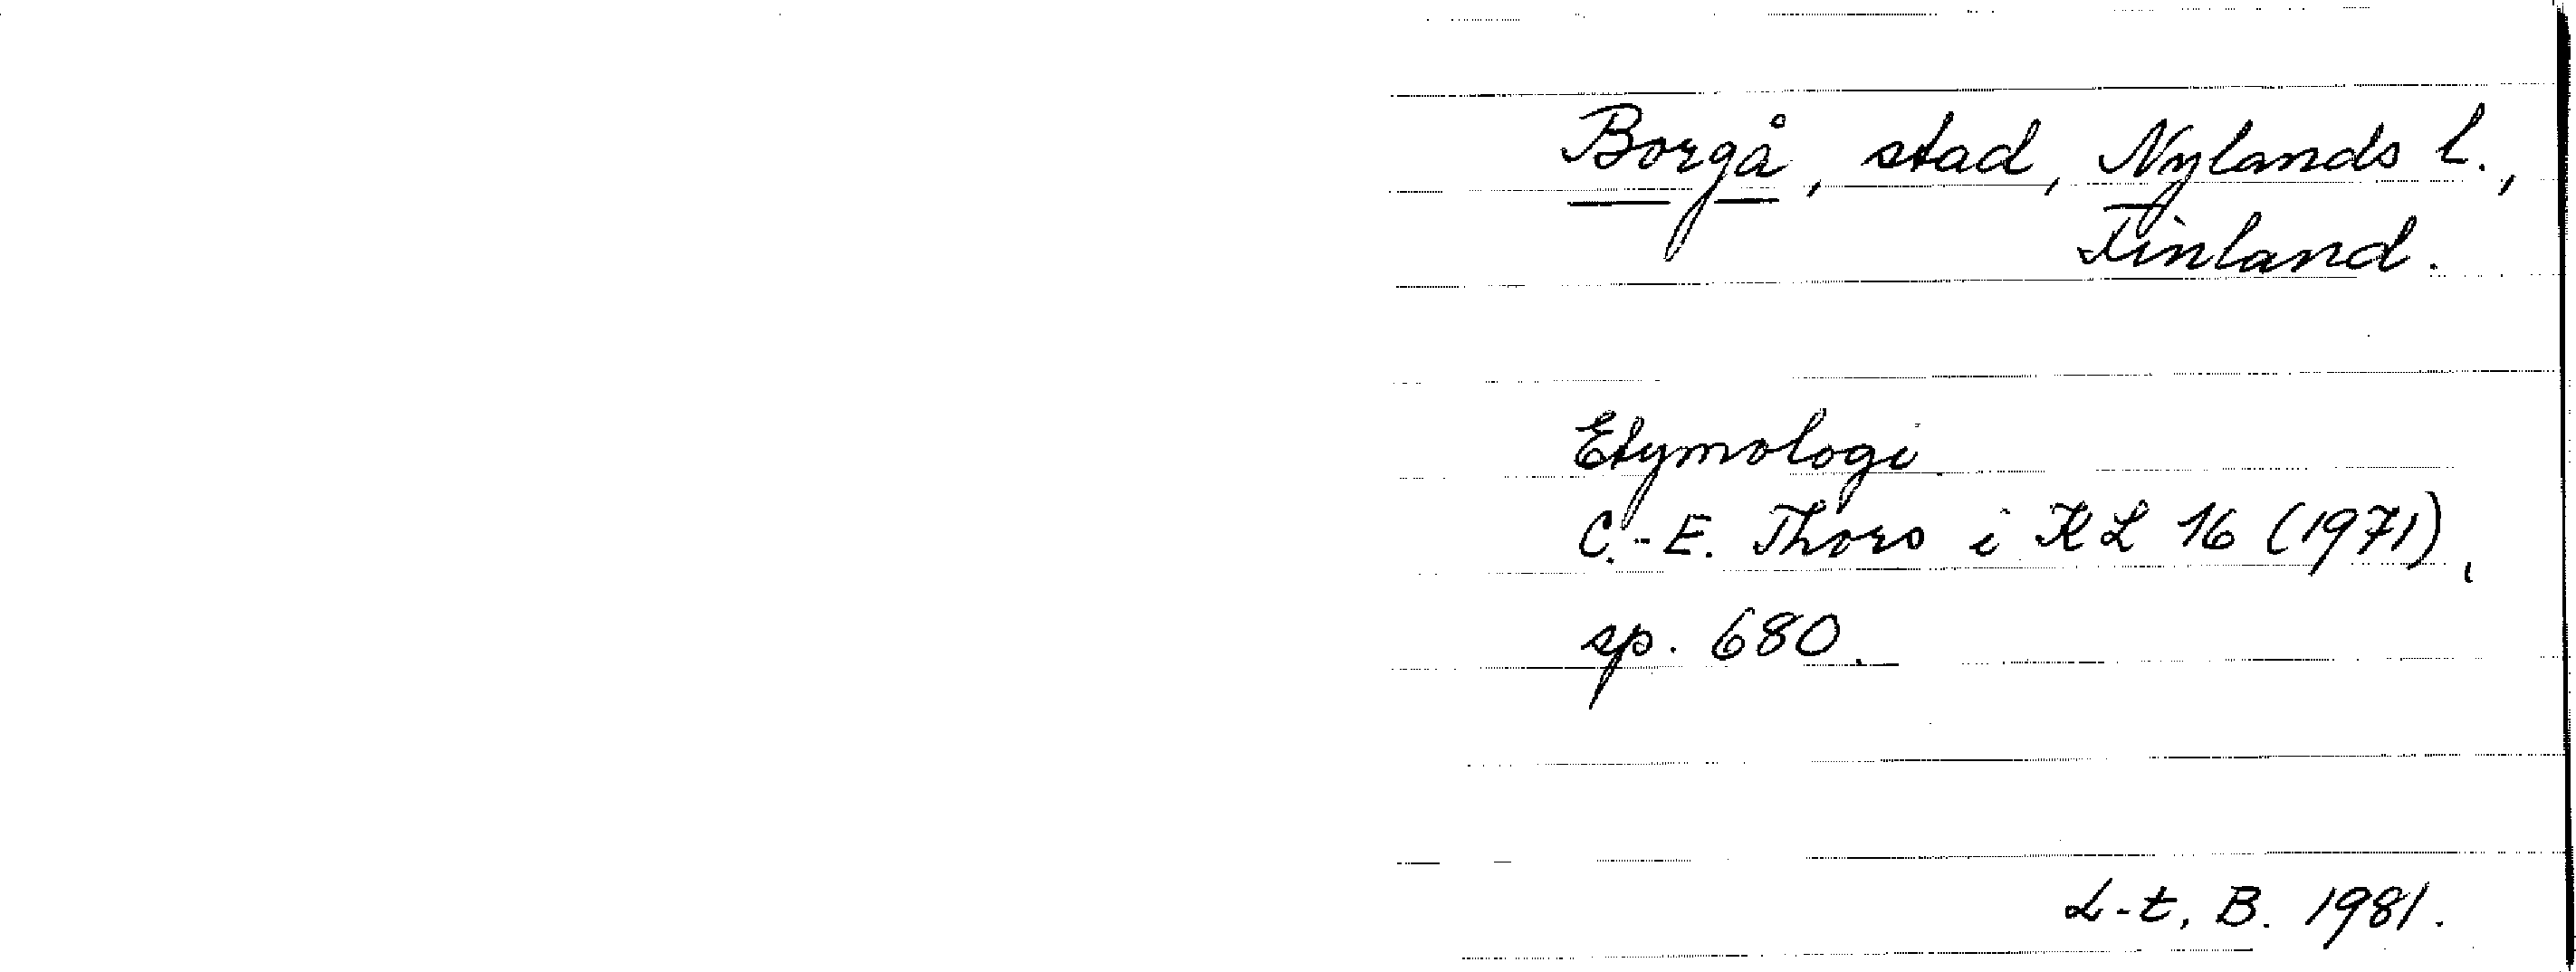 Borgå, stad, Nylands l.,
Finland.
Etymologi.
C.-E. Thors i KL 16 (1971),
sp. 680.
L-t, B. 1981.